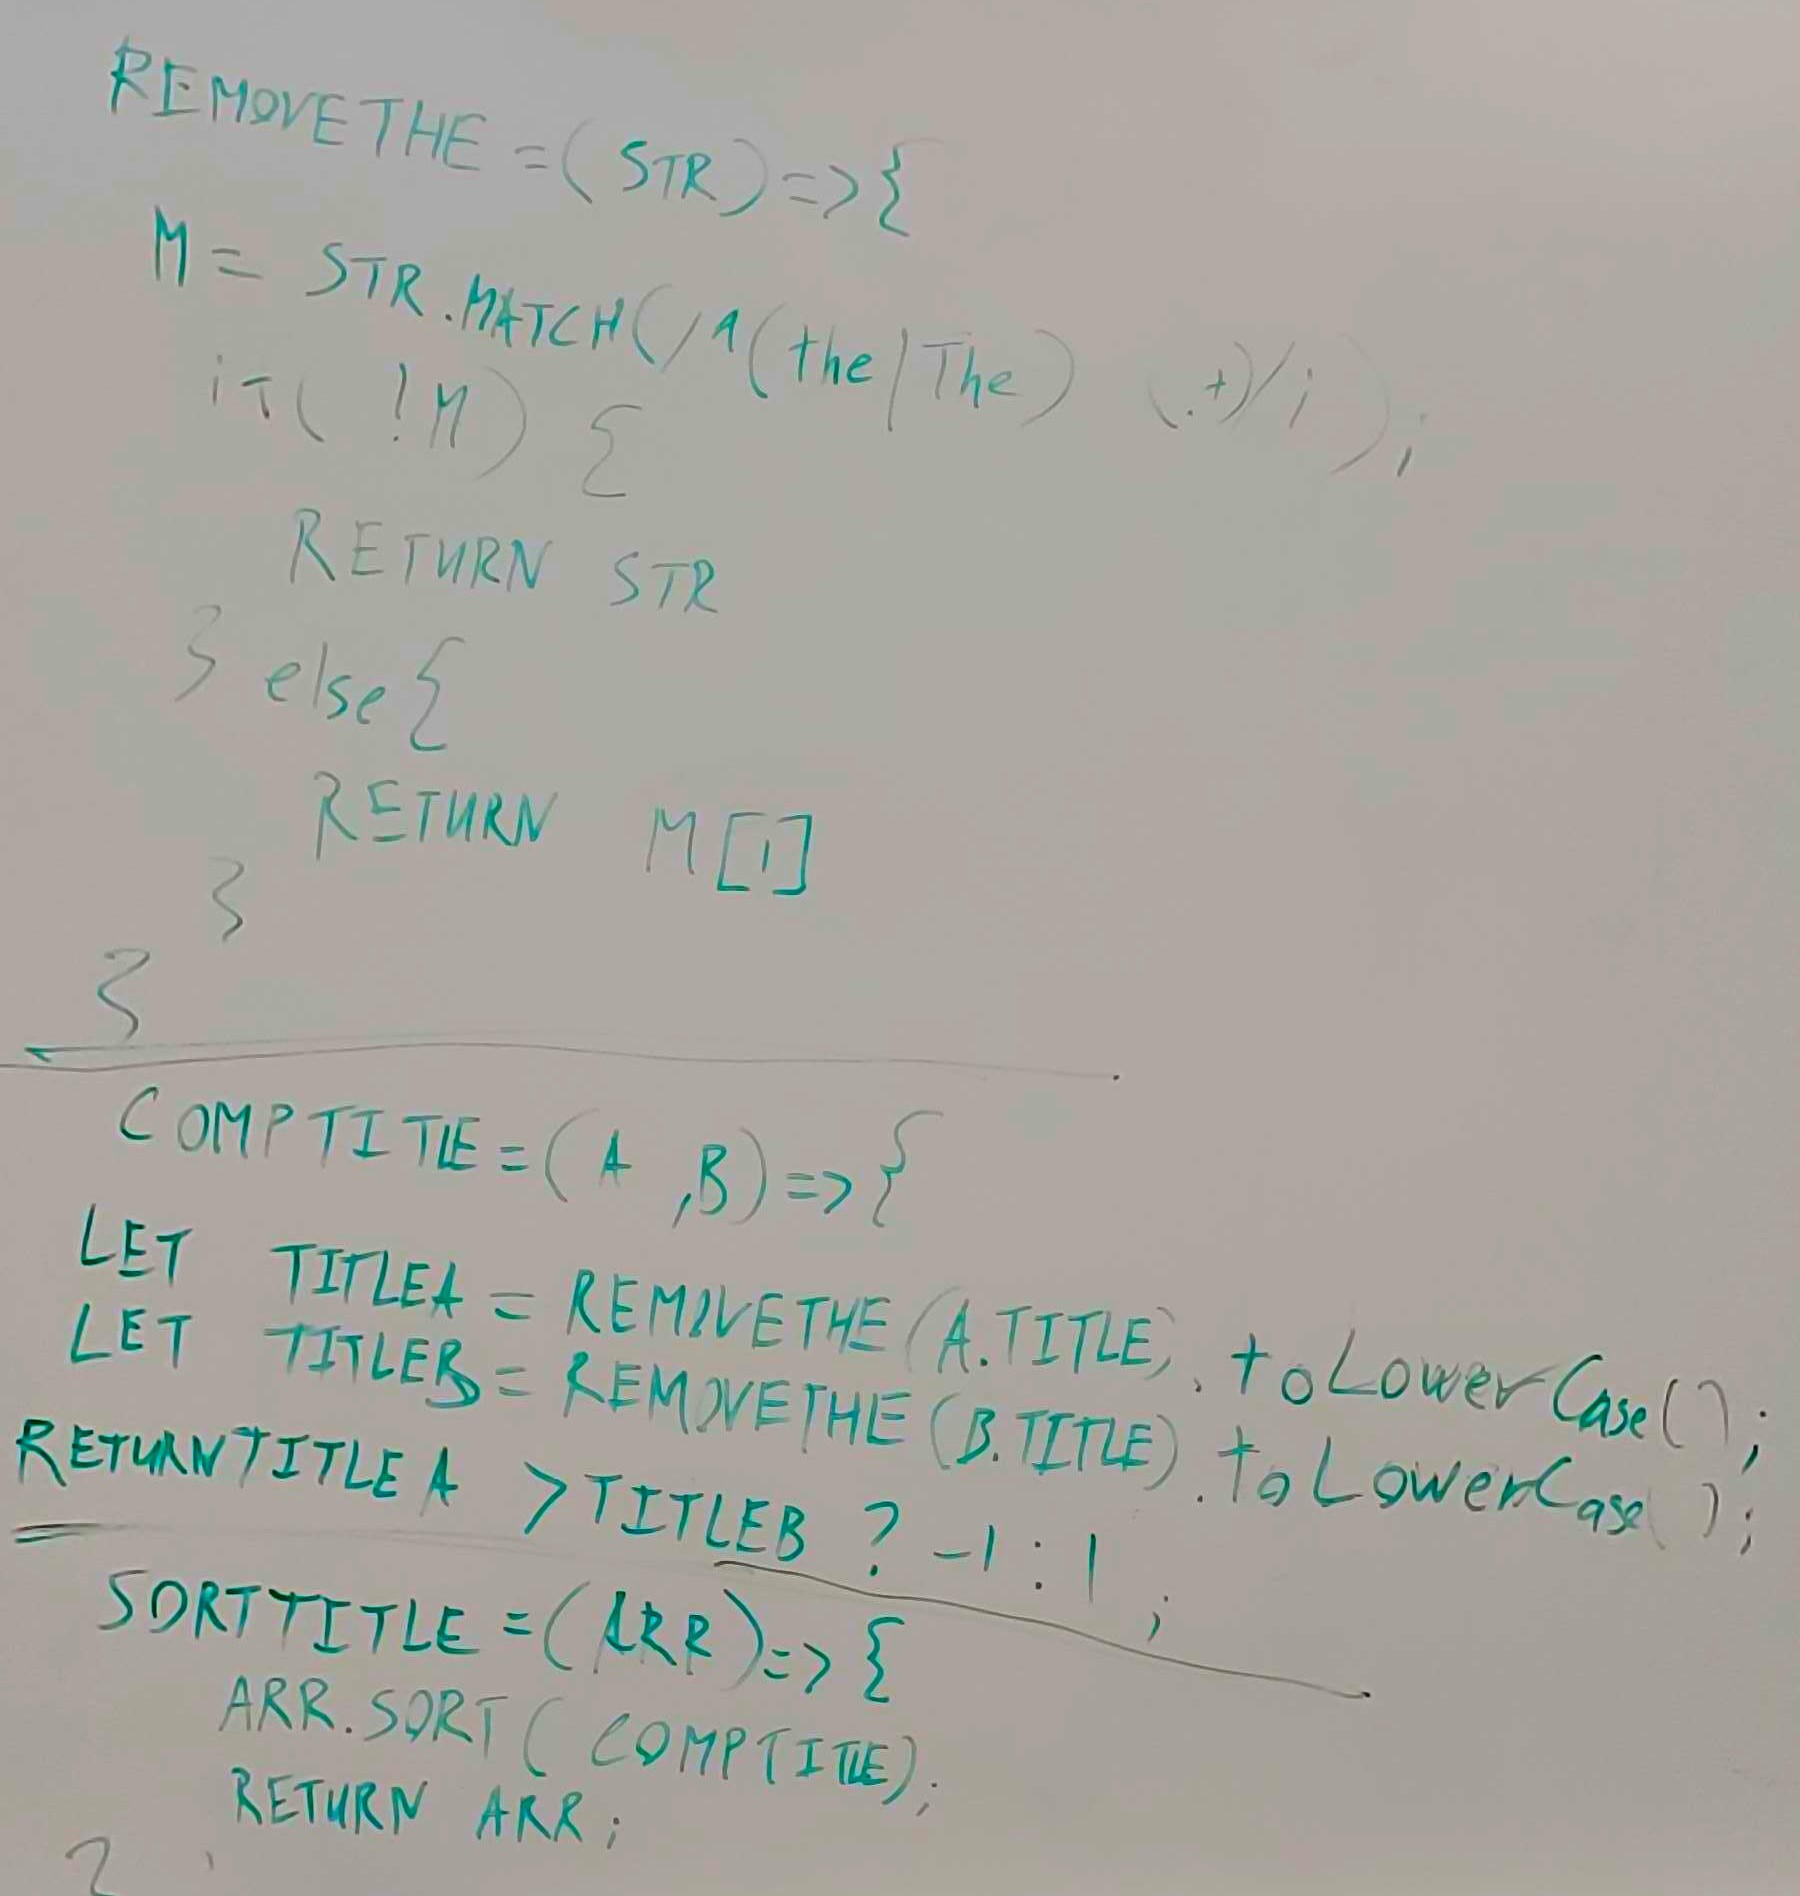 REMOVETHE = (STR) => {
M = STR.MATCH(/^(the|The) (.+)/i);
if( !M) {
RETURN STR
} else {
RETURN M[1]
}
}
COMPTITLE = (A ,B) => {
LET TITLEA = REMOVETHE(A.TITLE).toLowerCase();
LET TITLEB = REMOVETHE(B.TITLE).toLowerCase();
RETURN TITLEA > TITLEB ? -1 : 1 ;
SORTTITLE = (ARR) => {
ARR.SORT( COMPTITLE);
RETURN ARR;
}